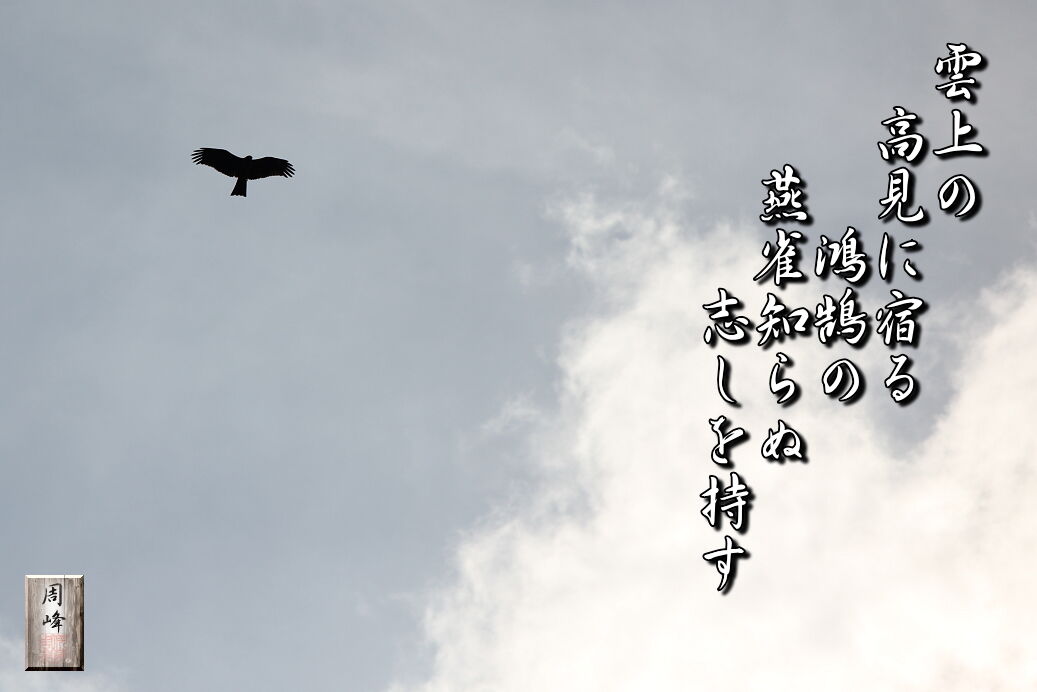 雲上の
高見に宿る
鴻鵠の
燕雀知らぬ
志しを持す
周峰